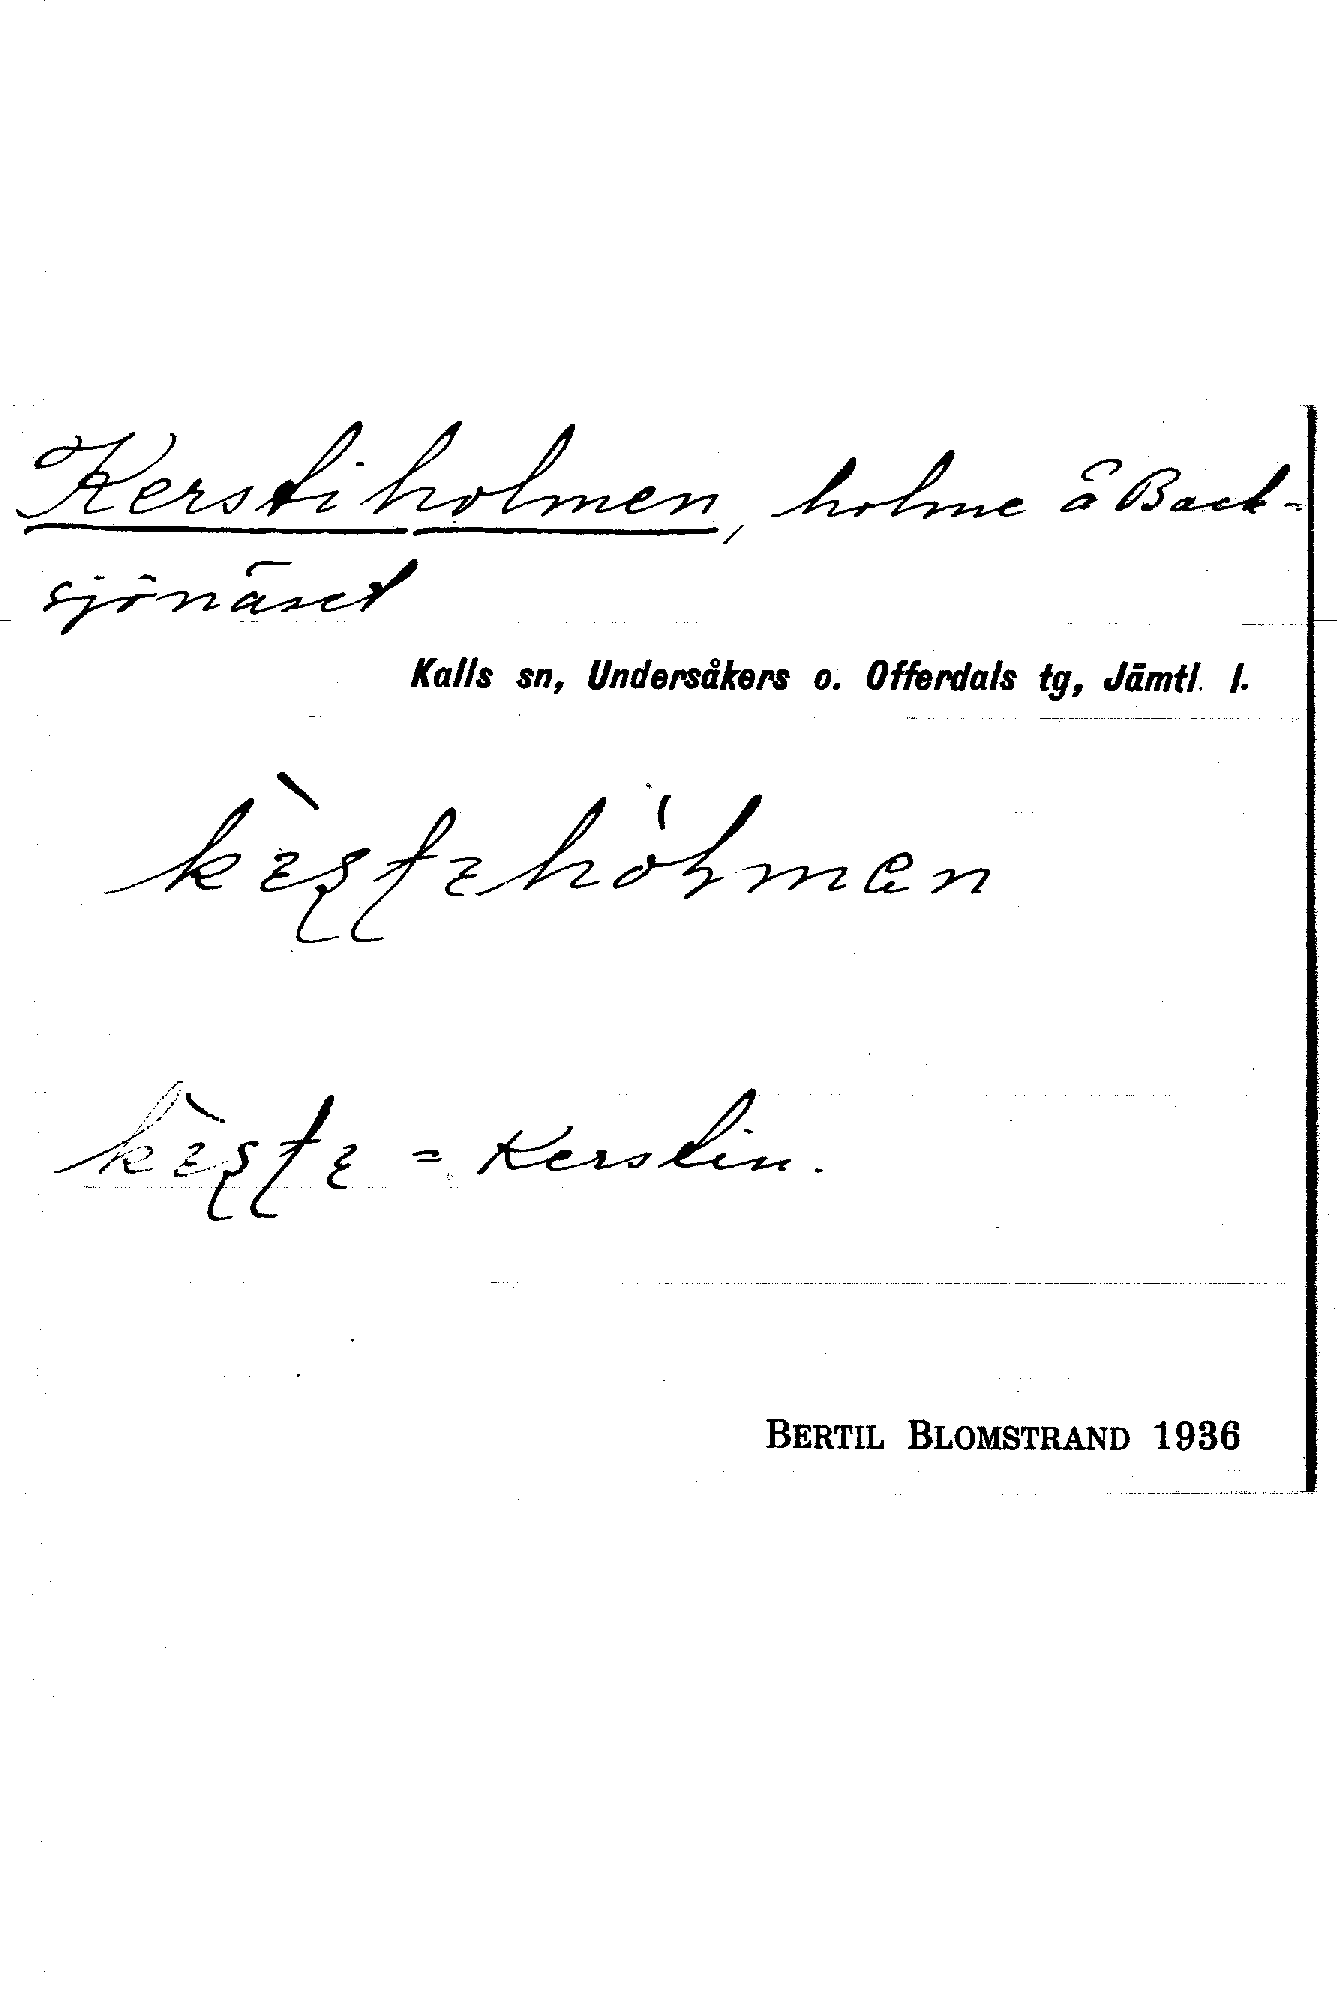 Kerstiholmen, holme å Back-
sjönäset
Kalls sn, Undersåkers o. Offerdals tg, Jämtl. l.
= Kerstin.
BERTIL BLOMSTRAND 1936